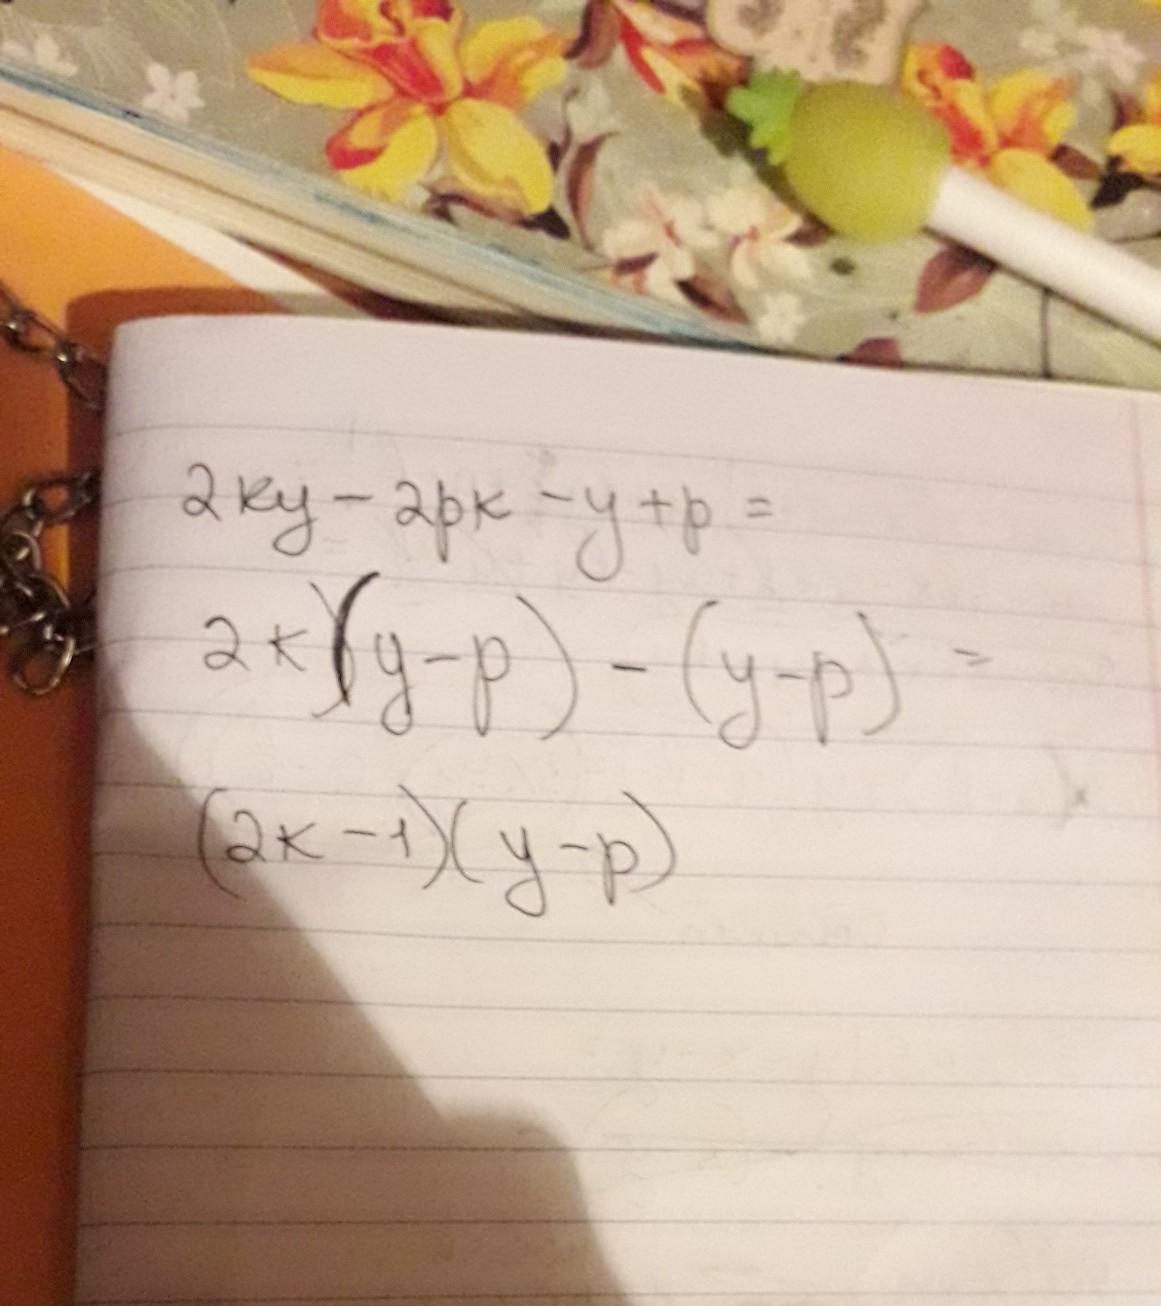 2ky - 2pk - y + p =
2k(y-p) - (y-p) =
(2k-1)(y-p)